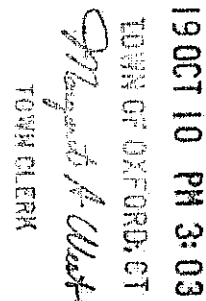 19 OCT 10 PM 3:03
TOWN OF OXFORD, CT
Margaret A West
TOWN CLERK